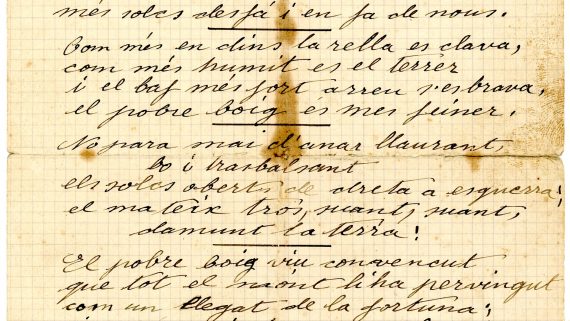 més solcs desfá i en fa de nous.
Com més en dins la rella es clava,
com més humit es el terrer
i el baf més fort arreu s'esbrava,
el pobre boig es mes feiner.
No para mai d'anar llaurant,
bo i trasbalsant
els solcs oberts de dreta a esquerra;
el mateix tros, suant, suant,
damunt la terra!
El pobre boig viu convencut
que tot el mont li ha pervingut
com un llegat de la fortuna;